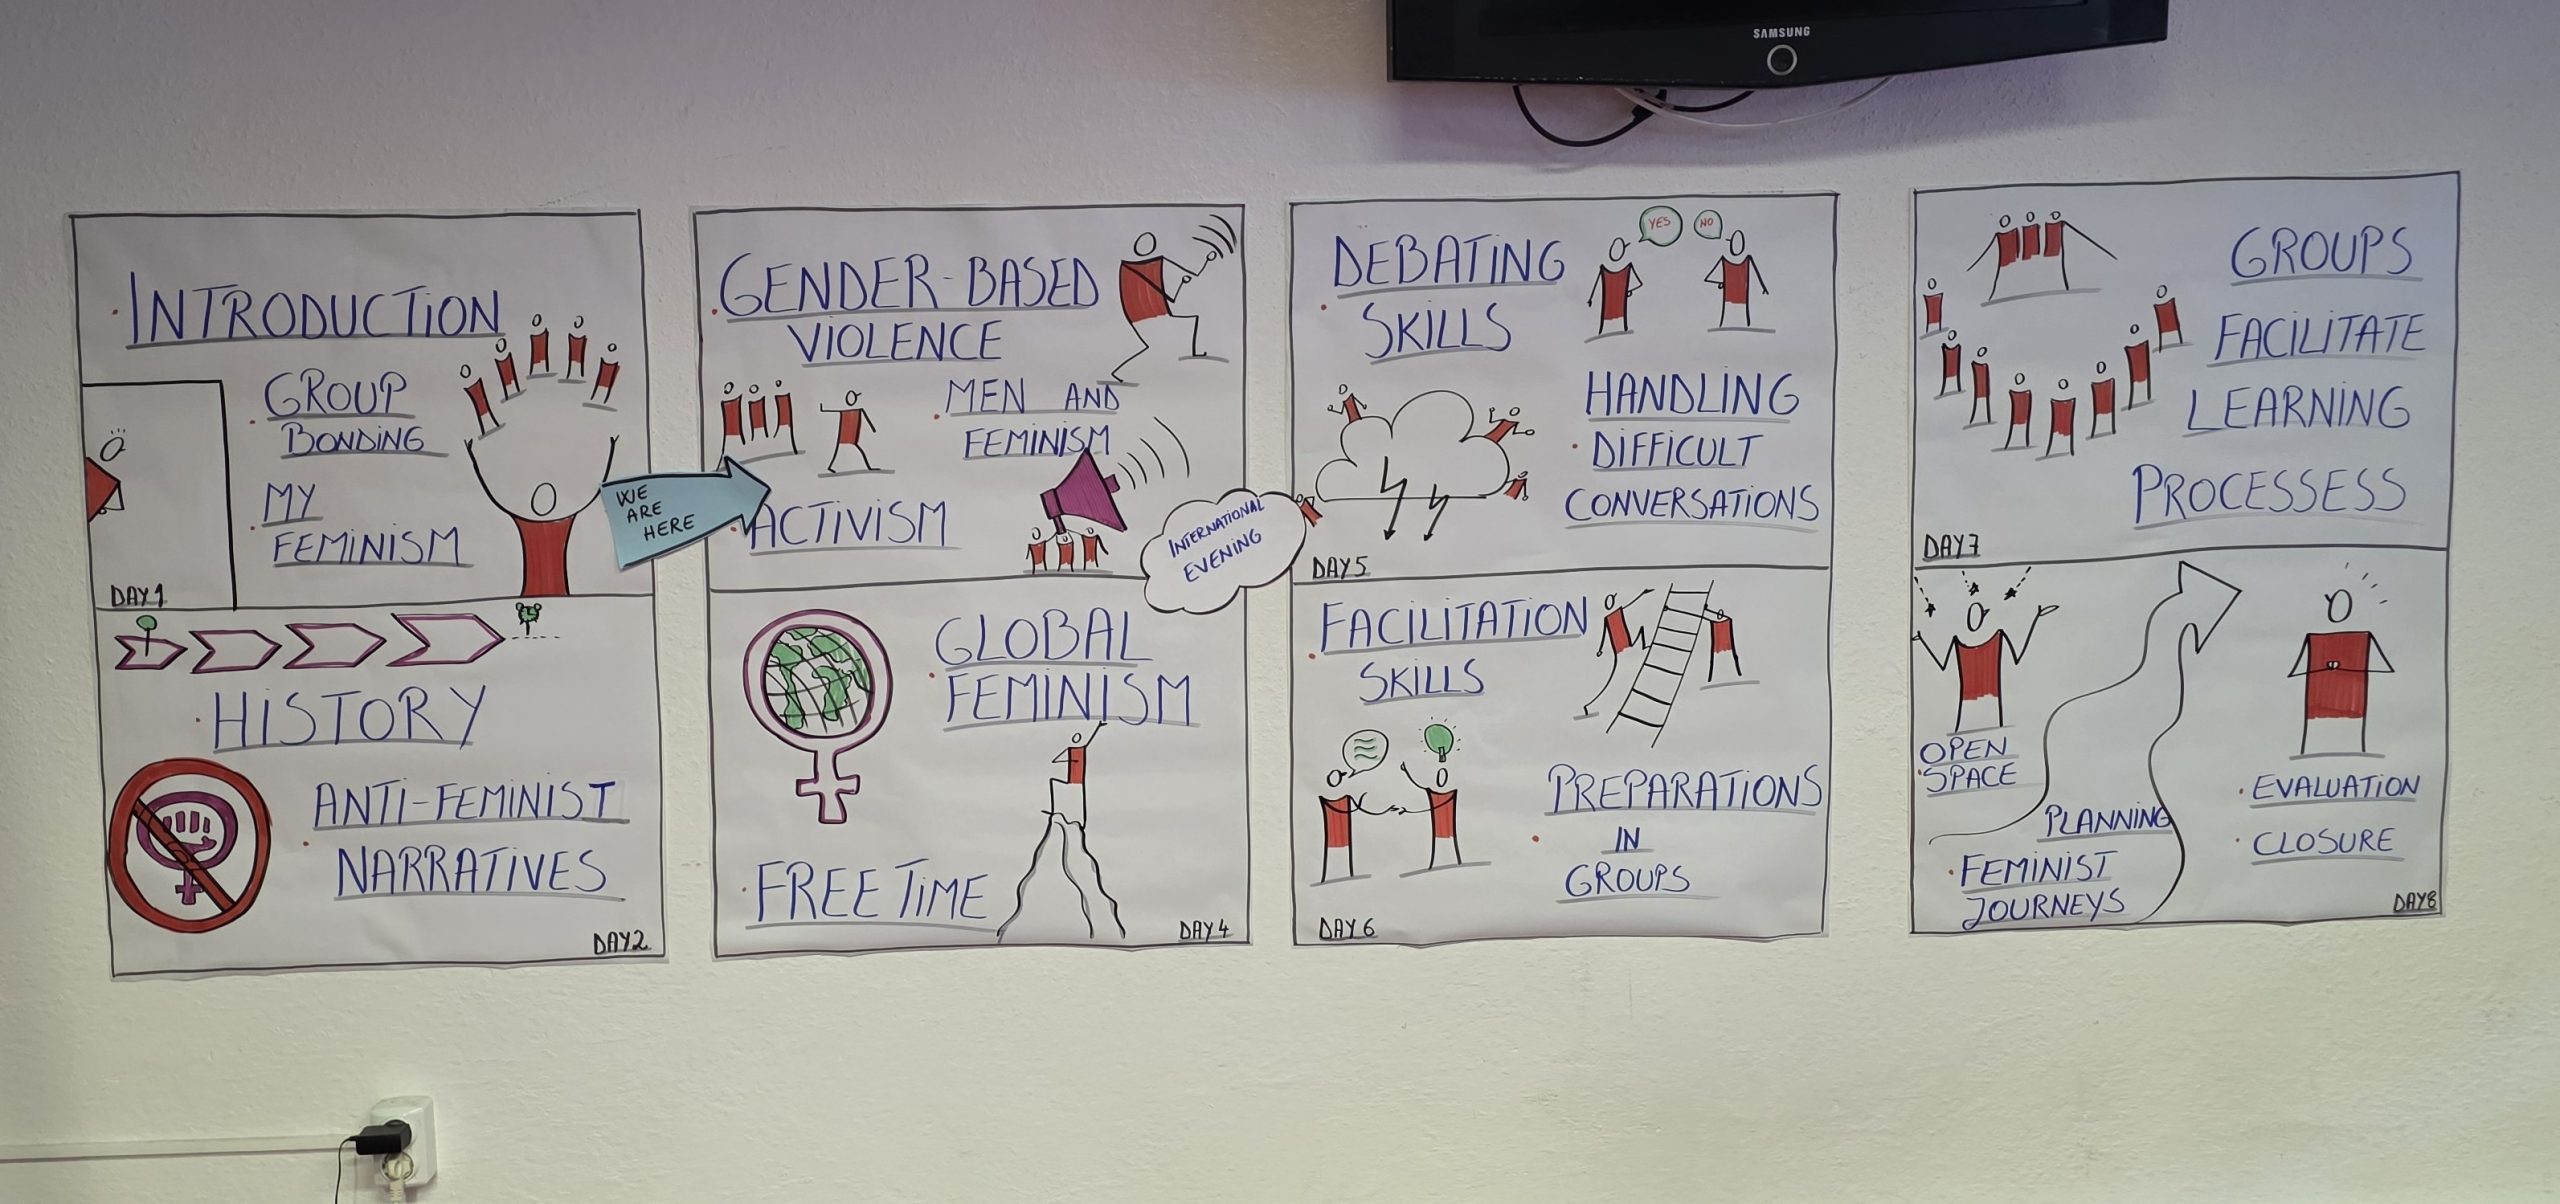 SAMSUNG
INTRODUCTION
GROUP
BONDING
MY
FEMINISM
DAY 1
HISTORY
ANTI-FEMINIST
NARRATIVES
DAY 2
WE
ARE
HERE
GENDER-BASED
VIOLENCE
MEN AND
FEMINISM
ACTIVISM
INTERNATIONAL
EVENING
GLOBAL
FEMINISM
FREE TIME
DAY 4
DEBATING
SKILLS
YES
NO
HANDLING
DIFFICULT
CONVERSATIONS
DAY 5
FACILITATION
SKILLS
PREPARATIONS
IN
GROUPS
DAY 6
GROUPS
FACILITATE
LEARNING
PROCESSESS
DAY 7
OPEN
SPACE
PLANNING
FEMINIST
JOURNEYS
EVALUATION
CLOSURE
DAY 8